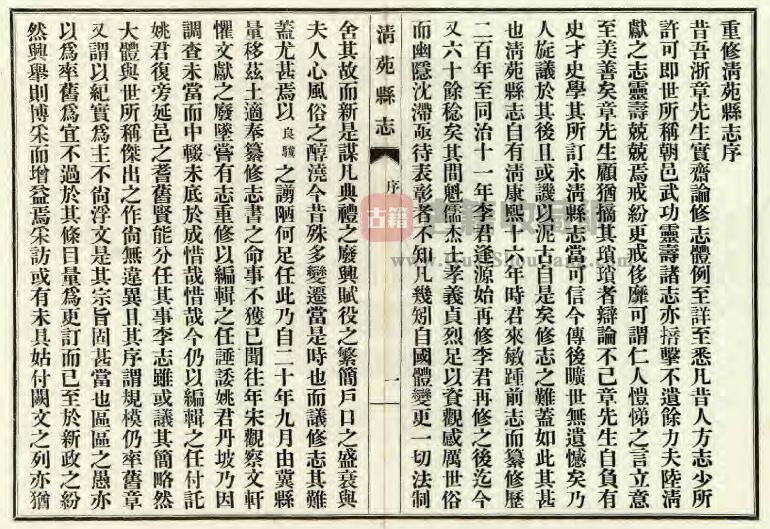 重修清苑縣志序
昔吾浙章先生實齋論修志體例至詳至悉凡昔人方志少所
許可即世所稱朝邑武功靈壽諸志亦掊擊不遺餘力夫陸清
獻之志靈壽兢兢焉戒紛更戒侈靡可謂仁人愷悌之言立意
至美善矣章先生顧猶摘其瑣瑣者辯論不已章先生自負有
史才史學其所訂永清縣志當可信今傳後曠世無遺憾矣乃
人旋議於其後且或譏以泥古自是矣修志之難蓋如此其甚
也清苑縣志自有清康熙十六年時君來敏踵前志而纂修歷
二百年至同治十一年李君逢源始再修李君再修之後迄今
又六十餘稔矣其間魁儒杰士孝義貞烈足以資觀感厲世俗
而幽隱沈滯亟待表彰者不知凡幾矧自國體變更一切法制
清苑縣志
序
一
舍其故而新是謀凡典禮之廢興賦役之繁簡戶口之盛衰與
夫人心風俗之醇澆今昔殊多變遷當是時也而議修志其難
蓋尤甚焉以良驥之謭陋何足任此乃自二十年九月由冀縣
量移茲土適奉纂修志書之命事不獲已聞往年宋觀察文軒
懼文獻之廢墜嘗有志重修以編輯之任諈諉姚君丹坡乃因
調查未當而中輟未底於成惜哉惜哉今仍以編輯之任付託
姚君復旁延邑之耆舊賢能分任其事李志雖或議其簡略然
大體與世所稱傑出之作尚無違異且其序謂規模仍率舊章
又謂以紀實爲主不尚浮文是其宗旨固甚當也區區之愚亦
以爲率舊爲宜不過於其條目量爲更訂而已至於新政之紛
然興舉則博采而增益焉采訪或有未具姑付闕文之列亦猶
古籍